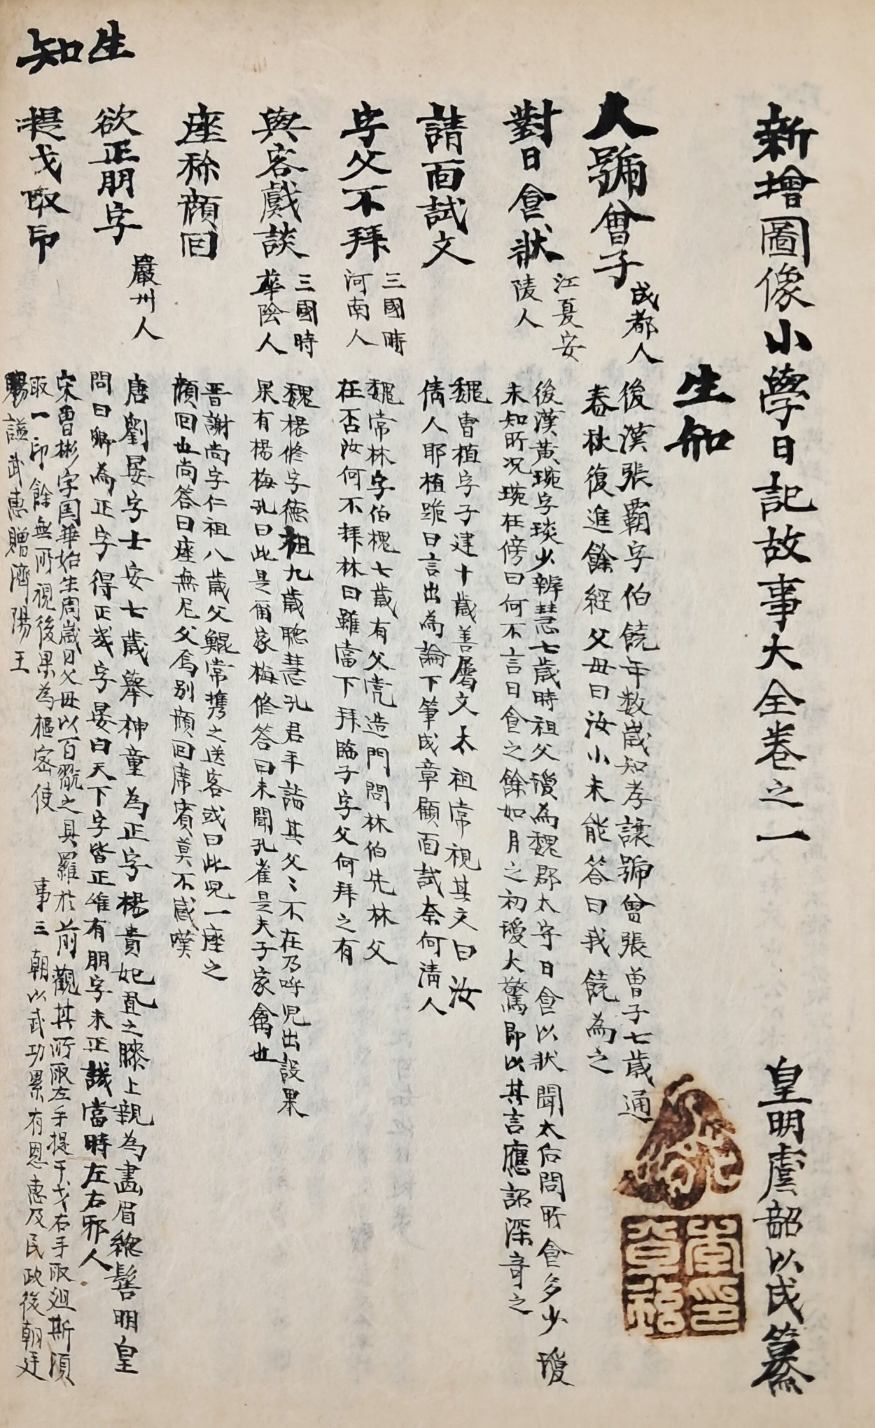 新增圖像小學日記故事大全卷之一
皇明虞韶以成纂
生知
人號曾子
成都人
後漢張霸字伯饒年数歲知孝讓號曾張曾子七歲通
春秋復進餘經父母曰汝小未能答曰我饒為之
對日食狀
江夏安
陵人
後漢黃琬字琰少辨慧七歲時祖父瓊為魏郡太守日食以狀聞太后問所食多少瓊
未知所况琬在傍曰何不言日食之餘如月之初瓊大驚即以其言應詔深奇之
請面試文
魏曹植字子建十歲善属文太祖常視其文曰汝
倩人耶植跪曰言出為論下筆成章願面試奈何淸人
字父不拜
三國時
河南人
魏常林字伯槐七歲有父党造門問林伯先林父
在否汝何不拜林曰雖當下拜臨子字父何拜之有
與客戲談
三國時
華陰人
魏楊修字德祖九歲聡慧孔君平詣其父〻不在乃呼児出設果
果有楊梅孔曰此是爾家梅修答曰未聞孔雀是夫子家禽也
座称顔回
晋謝尚字仁祖八歲父鯤常携之送客或曰此児一座之
顔回也尚答曰座無尼父焉别顔回席賓莫不感嘆
欲正朋字
嚴州人
唐劉晏字士安七歲舉神童為正字楊貴妃置之膝上親為畵眉総髻明皇
問曰卿為正字得正幾字晏曰天下字皆正惟有朋字未正譏當時左右邪人
提戈取印
宋曹彬字国華始生周歲日父母以百翫之具羅於前觀其所取左手提干戈右手取俎斯須
取一印餘無所視後果為樞密使
事三朝以武功累有恩惠及民政後朝廷
賜謚武惠贈濟陽王
生知